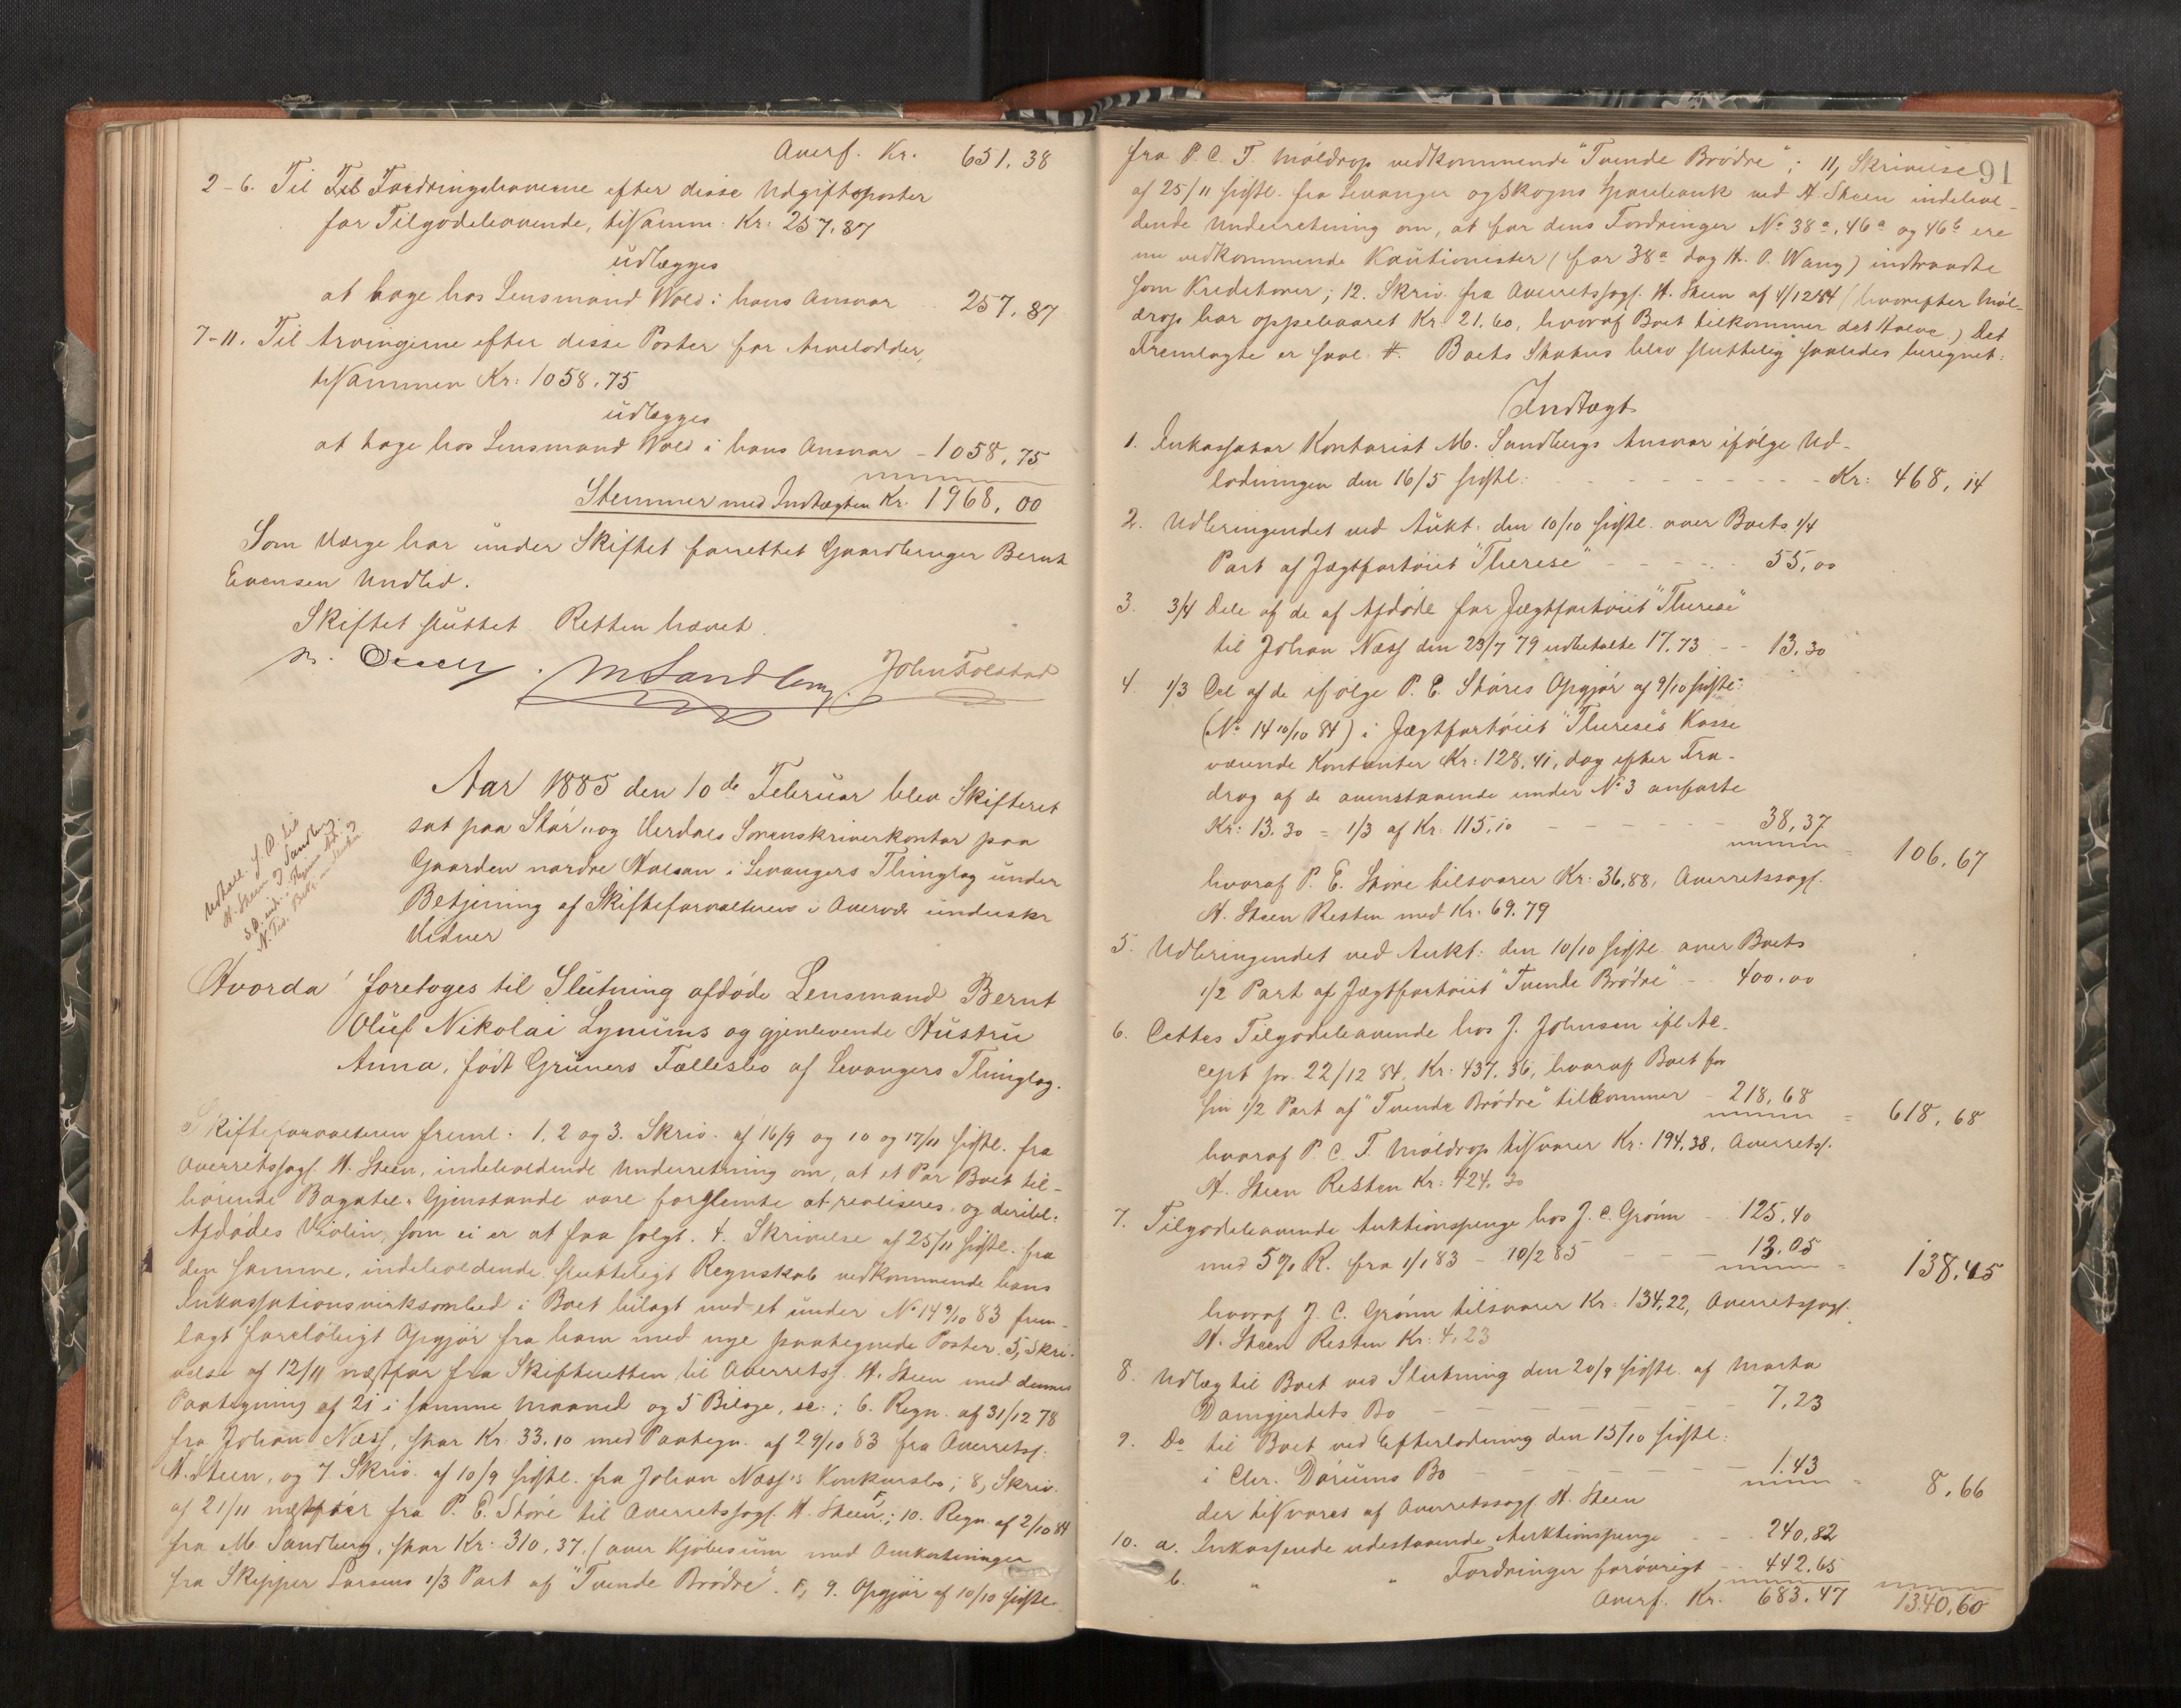 Overf. Kr. 651,38
2-6. Til Fordringshaverne efter disse Udgiftsposter
for Tilgodehavende, tilsamm. Kr: 257,87
udlægges
at tage hos Lensmand Wold i hans Ansvar 257,87
7-11. Til Arvingerne efter disse Poster for Arvelodder,
tilsammen Kr: 1058,75
udlægges
at tage hos Lensmand Wold i hans Ansvar - 1058,75
Stemmer med Indtægten Kr. 1968,00
Som Værge har under Skiftet forrettet Gaardbruger Bernt
Evensen Undlid.
Skiftet sluttet Retten hævet.
MSandberg. John Tolstad
Aar 1885 den 10de Februar blev Skifteret
sat paa Stør- og Verdals Sorenskriverkontor paa
Gaarden nordre Halsan i Levangers Thinglag under
Betjening af Skifteforvalteren i Overvær underskr
Vidner
Udstell. S. P. til
H. Steen og Sandberg.
Hvorda' foretoges til Slutning afdøde Lensmand Bernt
Oluf Nikolai Lynums og gjenlevende Hustru
Anna, født Grüners Fællesbo af Levangers Thinglag.
Skifteforvalteren freml: 1, 2 og 3. Skriv. af 16/9 og 10 og 17/11 sidstl. fra
Overretssagf. H. Steen, indeholdende Underretning om, at et Par Boet til-
hørende Bagatel-Gjenstande vare forglemte at realiseres, og deribl:
Afdødes Violin, som ei er at faa solgt. 4. Skrivelse af 25/11 sidstl. fra
den samme, indeholdende slutteligt Regnskab vedkommende hans
Inkassationsvirksomhed i Boet bilagt med et under No 14 9/10 83 frem-
lagt foreløbigt Opgjør fra ham med nye paategnede Poster. 5, Skri-
velse af 12/11 næstfør fra Skifteretten til Overretss. H. Steen med dennes
Paategning af 21 i samme Maaned og 5 Bilage, se: ; 6. Regn. af 31/12 78
fra Johan Næss, stor Kr. 33.10 med Paategn. af 29/10 83 fra Overretss.
H. Steen, og 7. Skriv. af 10/9 sidstl. fra Johan Næss's Konkursbo; 8, Skriv.
af 21/11 næstfør fra P. E. Støre til Overretssagf. H. Steen F; 10. Regn. af 2/10 84
fra M. Sandberg, stor Kr: 310,37. (over Kjøbesum med Omkostninger
fra Skipper Larsens 1/3 Part af "Tvende Brødre". F, 9. Opgjør af 10/10 sidstl.
91
fra P. C. T. Møldrop vedkommende "Tvende Brødre"; 11, Skrivelse
af 25/11 sidstl. fra Levanger og Skogns Sparebank ved H. Steen indehol-
dende Underretning om, at for dens Fordringer No 38a, 46a og 46b ere
nu vedkommende Kautionister (for 38a dog H. P. Wang) indtraadte
som Kreditorer; 12. Skriv. fra Overretssagf. H. Steen af 4/12 84 (hvorefter Møl-
drop har oppebaaret Kr. 21.60, hvoraf Boet tilkommer det Halve.) Det
Fremlagte er saal. #. Boets Status blev sluttelig saaledes beregnet:
Indtægt
1. Inkassator Kontorist M. Sandbergs Ansvar ifølge Ud-
lodningen den 16/5 sidstl: - - - Kr: 468,14
2. Udbringendet ved Aukt: den 10/10 sidstl. over Boets 1/4
Part af Jægtfartøiet "Therese" - - - 55,00
3. 3/4 Dele af de af Afdøde for Jægtfartøiet "Therese"
til Johan Næss den 23/7 79 udbetalte 17.73 - - 13.30
4. 1/3 Del af de ifølge P. E. Støres Opgjør af 9/10 sidstl:
(No 14 10/10 84) i Jægtfartøiet "Therese's Kasse
værende Kontanter Kr: 128.41, dog efter Fra-
drag af de ovenstaaende under No 3 anførte
Kr: 13.30 = 1/3 af Kr. 115,10 - - - 38,37 = 106,67
hvoraf P. E. Støre tilsvarer Kr: 36,88, Overretssagf.
H. Steen Resten med Kr. 69.79
5. Udbringendet ved Aukt: den 10/10 sidstl. over Boets
1/2 Part af Jægtfartøiet "Tvende Brødre" - 400.00
6. Dettes Tilgodehavende hos J. Johnsen ifl. Ac-
cept pr. 22/12 84. Kr. 437,36, hvoraf Boet for
sin 1/2 Part af "Tvende Brødre" tilkommer - 218,68 = 618,68
hvoraf P. C. T. Møldrop tilsvarer Kr: 194.38, Overretss.
H. Steen Resten Kr: 424.30
7. Tilgodehavende Auktionspenge hos J. C. Grønn - 125.40
med 5% R. fra 1/1 83 - 10/2 85 - - - 13.05 = 138,45
hvoraf J. C. Grønn tilsvarer Kr: 134,22, Overretssagf.
H. Steen Resten Kr: 4.23
8. Udlæg til Boet ved Slutning den 20/9 sidstl. af Marta
Damgjerdets Bo - - - 7,23
9. Do til Boet ved Efterlodning den 13/10 sidstl:
i Chr. Dørums Bo - - - 1.43 = 8,66
der tilsvares af Overretssagf. H. Steen
10. a. Inkasserede udestaaende Auktionspenge - - 240,82
b. " " Fordringer forøvrigt - - 442.65
Overf. Kr. 683.47 1340,60